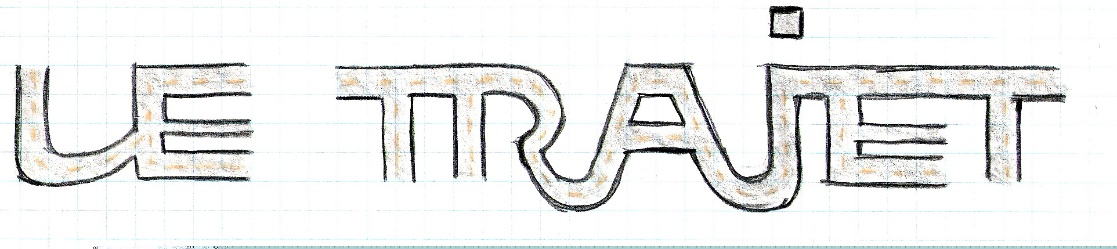 LE TRAjET